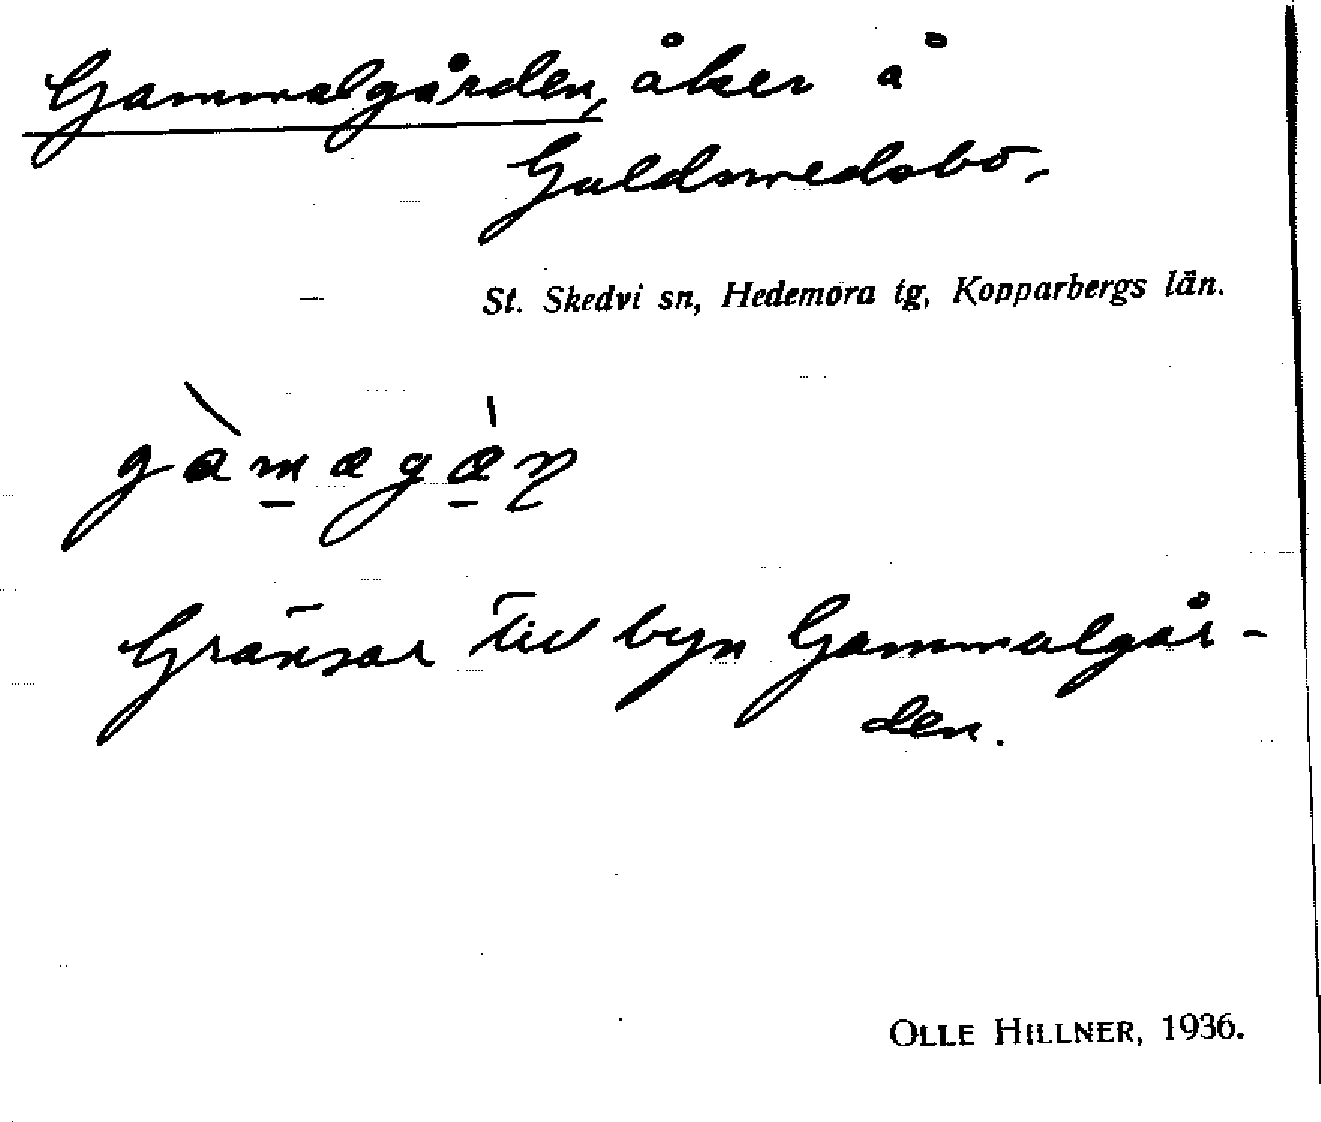 Gammalgården, åker å
Guldsmedsbo,
St. Skedvi sn, Hedemora tg, Kopparbergs län.
gàmægæ̀ṇ
Gränsar till byn Gammalgår-
den.
OLLE HILLNER, 1936.